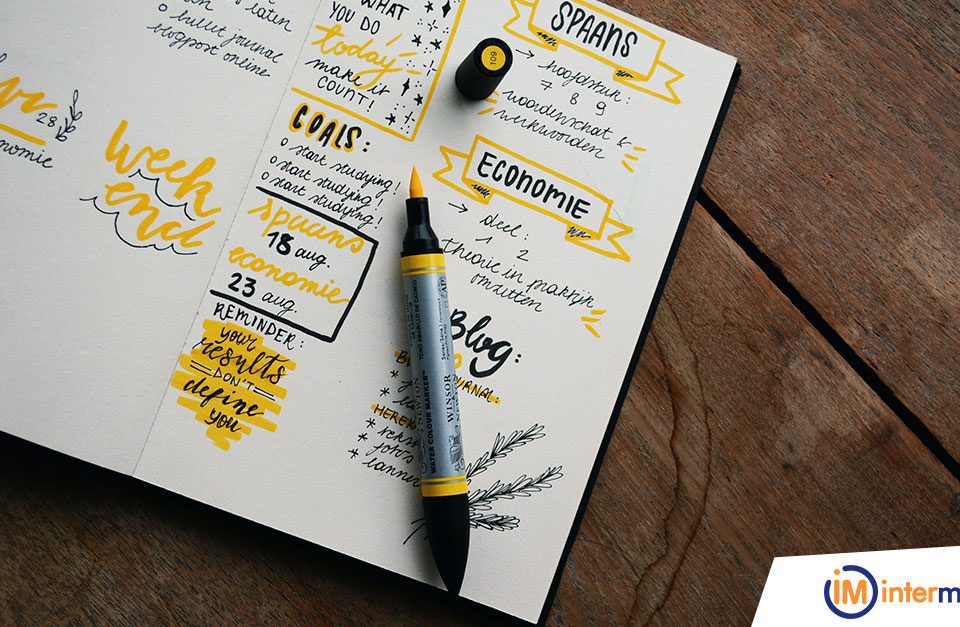 later
o bullet journal
blogpost online
28
Week
end
WHAT
YOU DO
today
make it
COUNT!
GOALS:
o start studying!
o start studying!
o start studying!
spaans
18 aug.
economie
23 aug.
REMINDER:
your
results
DON'T
define
you
SPAANS
→ hoofdstuk:
7 8 9
woordenschat &
werkwoorden
ECONOMIE
→ deel:
1 2
theorie in praktijk
omzetten
Blog:
JOURNAL:
109
WATER COLOUR MARKER™
WINSOR
NEWTON
iM interm